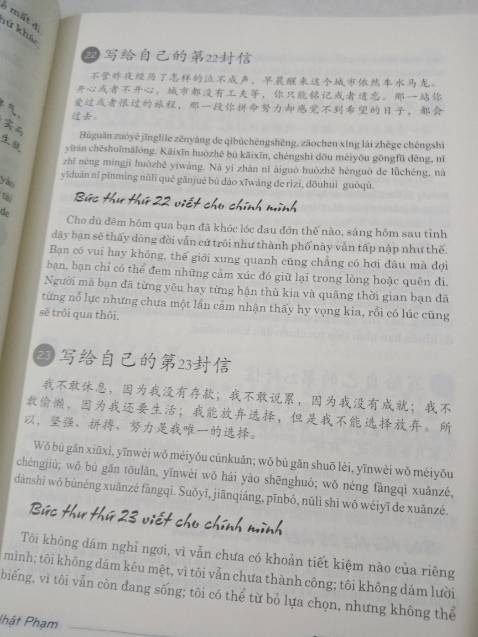 ê mất đi
hứ khác
22 写给自己的第22封信
不管昨夜经历了怎样的泣不成声，早晨醒来这个城市依然车水马龙。
开心或者不开心，城市都没有工夫等，你只能铭记或者遗忘。那一站你
爱过或者恨过的旅程，那一段你拼命努力却感觉不到希望的日子，都会
过去。
Bùguǎn zuóyè jīnglìle zěnyàng de qìbùchéngshēng, zǎochen xǐng lái zhège chéngshì
yīrán chēshuǐmǎlóng. Kāixīn huòzhě bù kāixīn, chéngshì dōu méiyǒu gōngfū děng, nǐ
zhǐ néng míngjì huòzhě yíwàng. Nà yí zhàn nǐ àiguò huòzhě hènguò de lǚchéng, nà
yíduàn nǐ pīnmìng nǔlì què gǎnjué bù dào xīwàng de rìzi, dōuhuì guòqù.
Bức thư thứ 22 viết cho chính mình
Cho dù đêm hôm qua bạn đã khóc lóc đau đớn thế nào, sáng hôm sau tỉnh
dậy bạn sẽ thấy dòng đời vẫn cứ trôi như thành phố này vẫn tấp nập như thế.
Bạn có vui hay không, thế giới xung quanh cũng chẳng có hơi đâu mà đợi
bạn, bạn chỉ có thể đem những cảm xúc đó giữ lại trong lòng hoặc quên đi.
Người mà bạn đã từng yêu hay từng hận thù kia và quãng thời gian bạn đã
từng nỗ lực nhưng chưa một lần cảm nhận thấy hy vọng kia, rồi có lúc cũng
sẽ trôi qua thôi.
23 写给自己的第23封信
我不敢休息，因为我没有存款；我不敢说累，因为我没有成就；我不
敢偷懒，因为我还要生活；我能放弃选择，但是我不能选择放弃。所
以，坚强、拼搏、努力是我唯一的选择。
Wǒ bù gǎn xiūxi, yīnwèi wǒ méiyǒu cúnkuǎn; wǒ bù gǎn shuō lèi, yīnwèi wǒ méiyǒu
chéngjiù; wǒ bù gǎn tōulǎn, yīnwèi wǒ hái yào shēnghuó; wǒ néng fàngqì xuǎnzé,
dànshì wǒ bùnéng xuǎnzé fàngqì. Suǒyǐ, jiānqiáng, pīnbó, nǔlì shì wǒ wéiyī de xuǎnzé.
Bức thư thứ 23 viết cho chính mình
Tôi không dám nghỉ ngơi, vì vẫn chưa có khoản tiết kiệm nào của riêng
mình; tôi không dám kêu mệt, vì tôi vẫn chưa thành công; tôi không dám lười
biếng, vì tôi vẫn còn đang sống; tôi có thể từ bỏ lựa chọn, nhưng không thể
Nhật Phạm